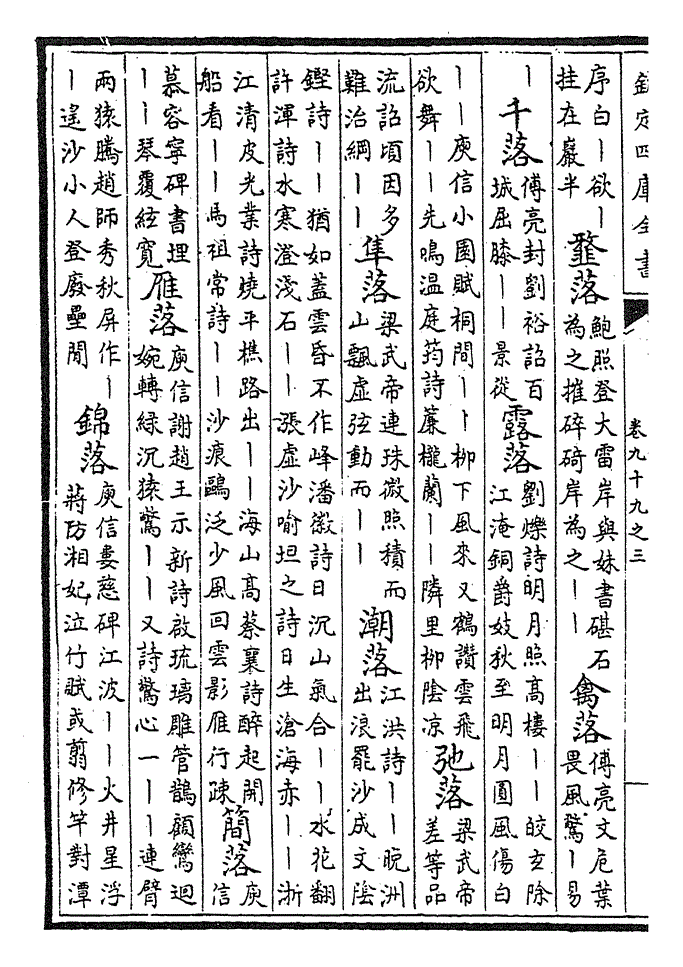 欽定四庫全書 卷九十九之三
序白丨欲丨
挂在巖半
虀落
鮑照登大雷岸與妹書碪石
為之摧碎碕岸為之丨丨
禽落
傅亮文危葉
畏風驚丨易
丨
千落
傅亮封劉裕詔百
城屈膝丨丨景從
露落
劉爍詩明月照高樓丨丨皎玄除
江淹銅爵妓秋至明月圓風傷白
丨丨庾信小園賦桐間丨丨柳下風來又鶴讚雲飛
欲舞丨丨先鳴温庭筠詩簾櫳蘭丨丨隣里柳陰凉
弛落
梁武帝
差等品
流詔頃因多
難治綱丨丨
隼落
梁武帝連珠微照積而
山飄虛弦動而丨丨
潮落
江洪詩丨丨晩洲
出浪罷沙成文陰
鏗詩丨丨猶如蓋雲昏不作峰潘徽詩日沉山氣合丨丨水花翻
許渾詩水寒澄淺石丨丨漲虛沙喻坦之詩日生滄海赤丨丨浙
江清皮光業詩燒平樵路出丨丨海山高蔡襄詩醉起開
船看丨丨馬祖常詩丨丨沙痕鷗泛少風回雲影雁行疎
簡落
庾
信
慕容寧碑書埋
丨丨琴覆絃寛
雁落
庾信謝趙王示新詩啟琉璃雕管鵲顧鸞迴
婉轉緑沉猿驚丨丨又詩驚心一丨丨連臂
兩猿騰趙師秀秋屏作丨
丨遙沙小人登廢壘閒
錦落
庾信婁慈碑江波丨丨火井星浮
蔣防湘妃泣竹賦或翦修竿對潭